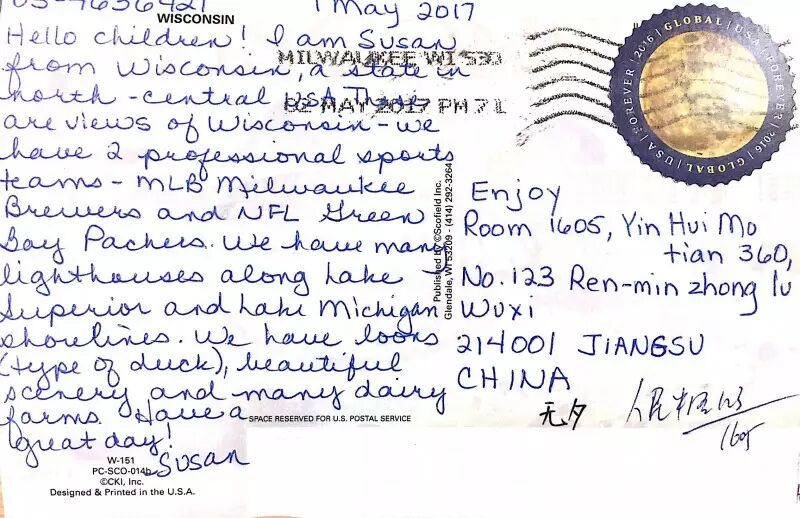 US-4636421
WISCONSIN
1 May 2017
Hello children! I am Susan
from Wisconsin, a state in
north-central USA. These
are views of Wisconsin - we
have 2 professional sports
teams - MLB Milwaukee
Brewers and NFL Green
Bay Packers. We have many
lighthouses along Lake
Superior and Lake Michigan
shorelines. We have loons
(type of duck), beautiful
scenery and many dairy
farms. Have a
great day!
Susan
W-151
PC-SCO-014b
©CKI, Inc.
Designed & Printed in the U.S.A.
MILWAUKEE WI 530
02 MAY 2017 PM 7 L
GLOBAL | USA | FOREVER | 2016 | GLOBAL | USA | FOREVER | 2016
Published by ©Scofield Inc.
Glendale, WI 53209 - (414) 292-3264
Enjoy
Room 1605, Yin Hui Mo
tian 360,
No. 123 Ren-min zhong lu
Wuxi
214001 JIANGSU
CHINA
SPACE RESERVED FOR U.S. POSTAL SERVICE
无夕
人民中路123
1605